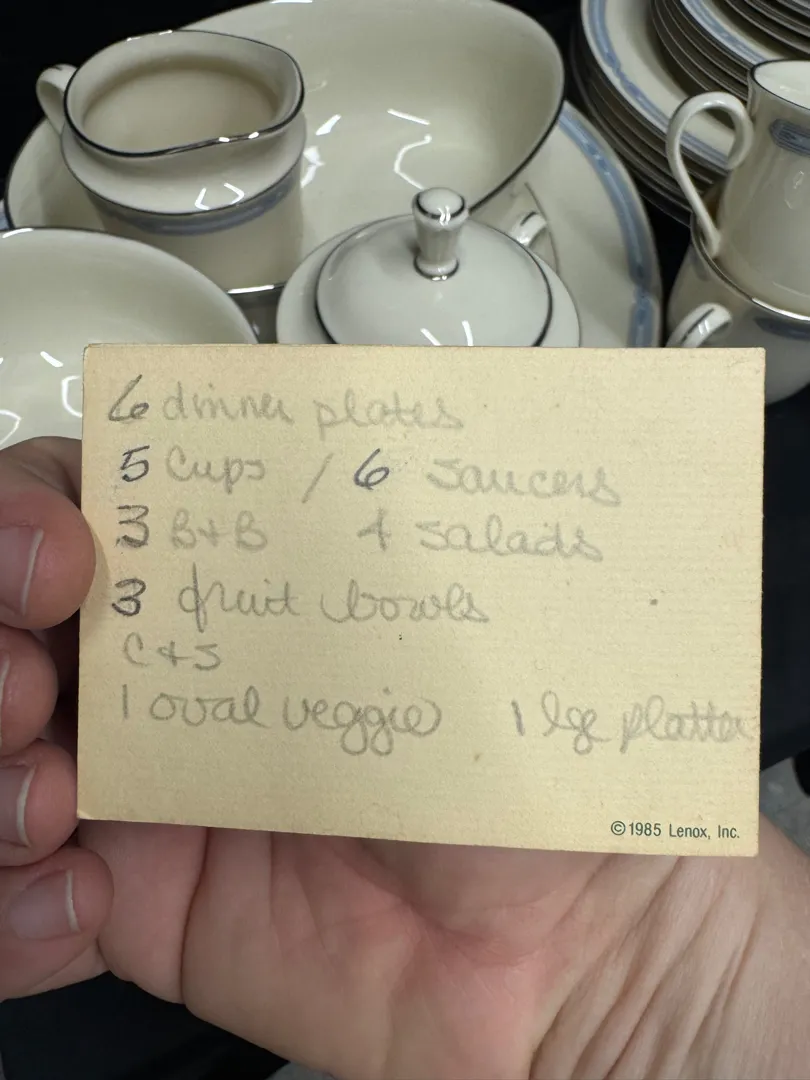 6 dinner plates
5 Cups / 6 saucers
3 B+B 4 salads
3 fruit bowls
C + S
1 oval veggie 1 lge platter
©1985 Lenox, Inc.